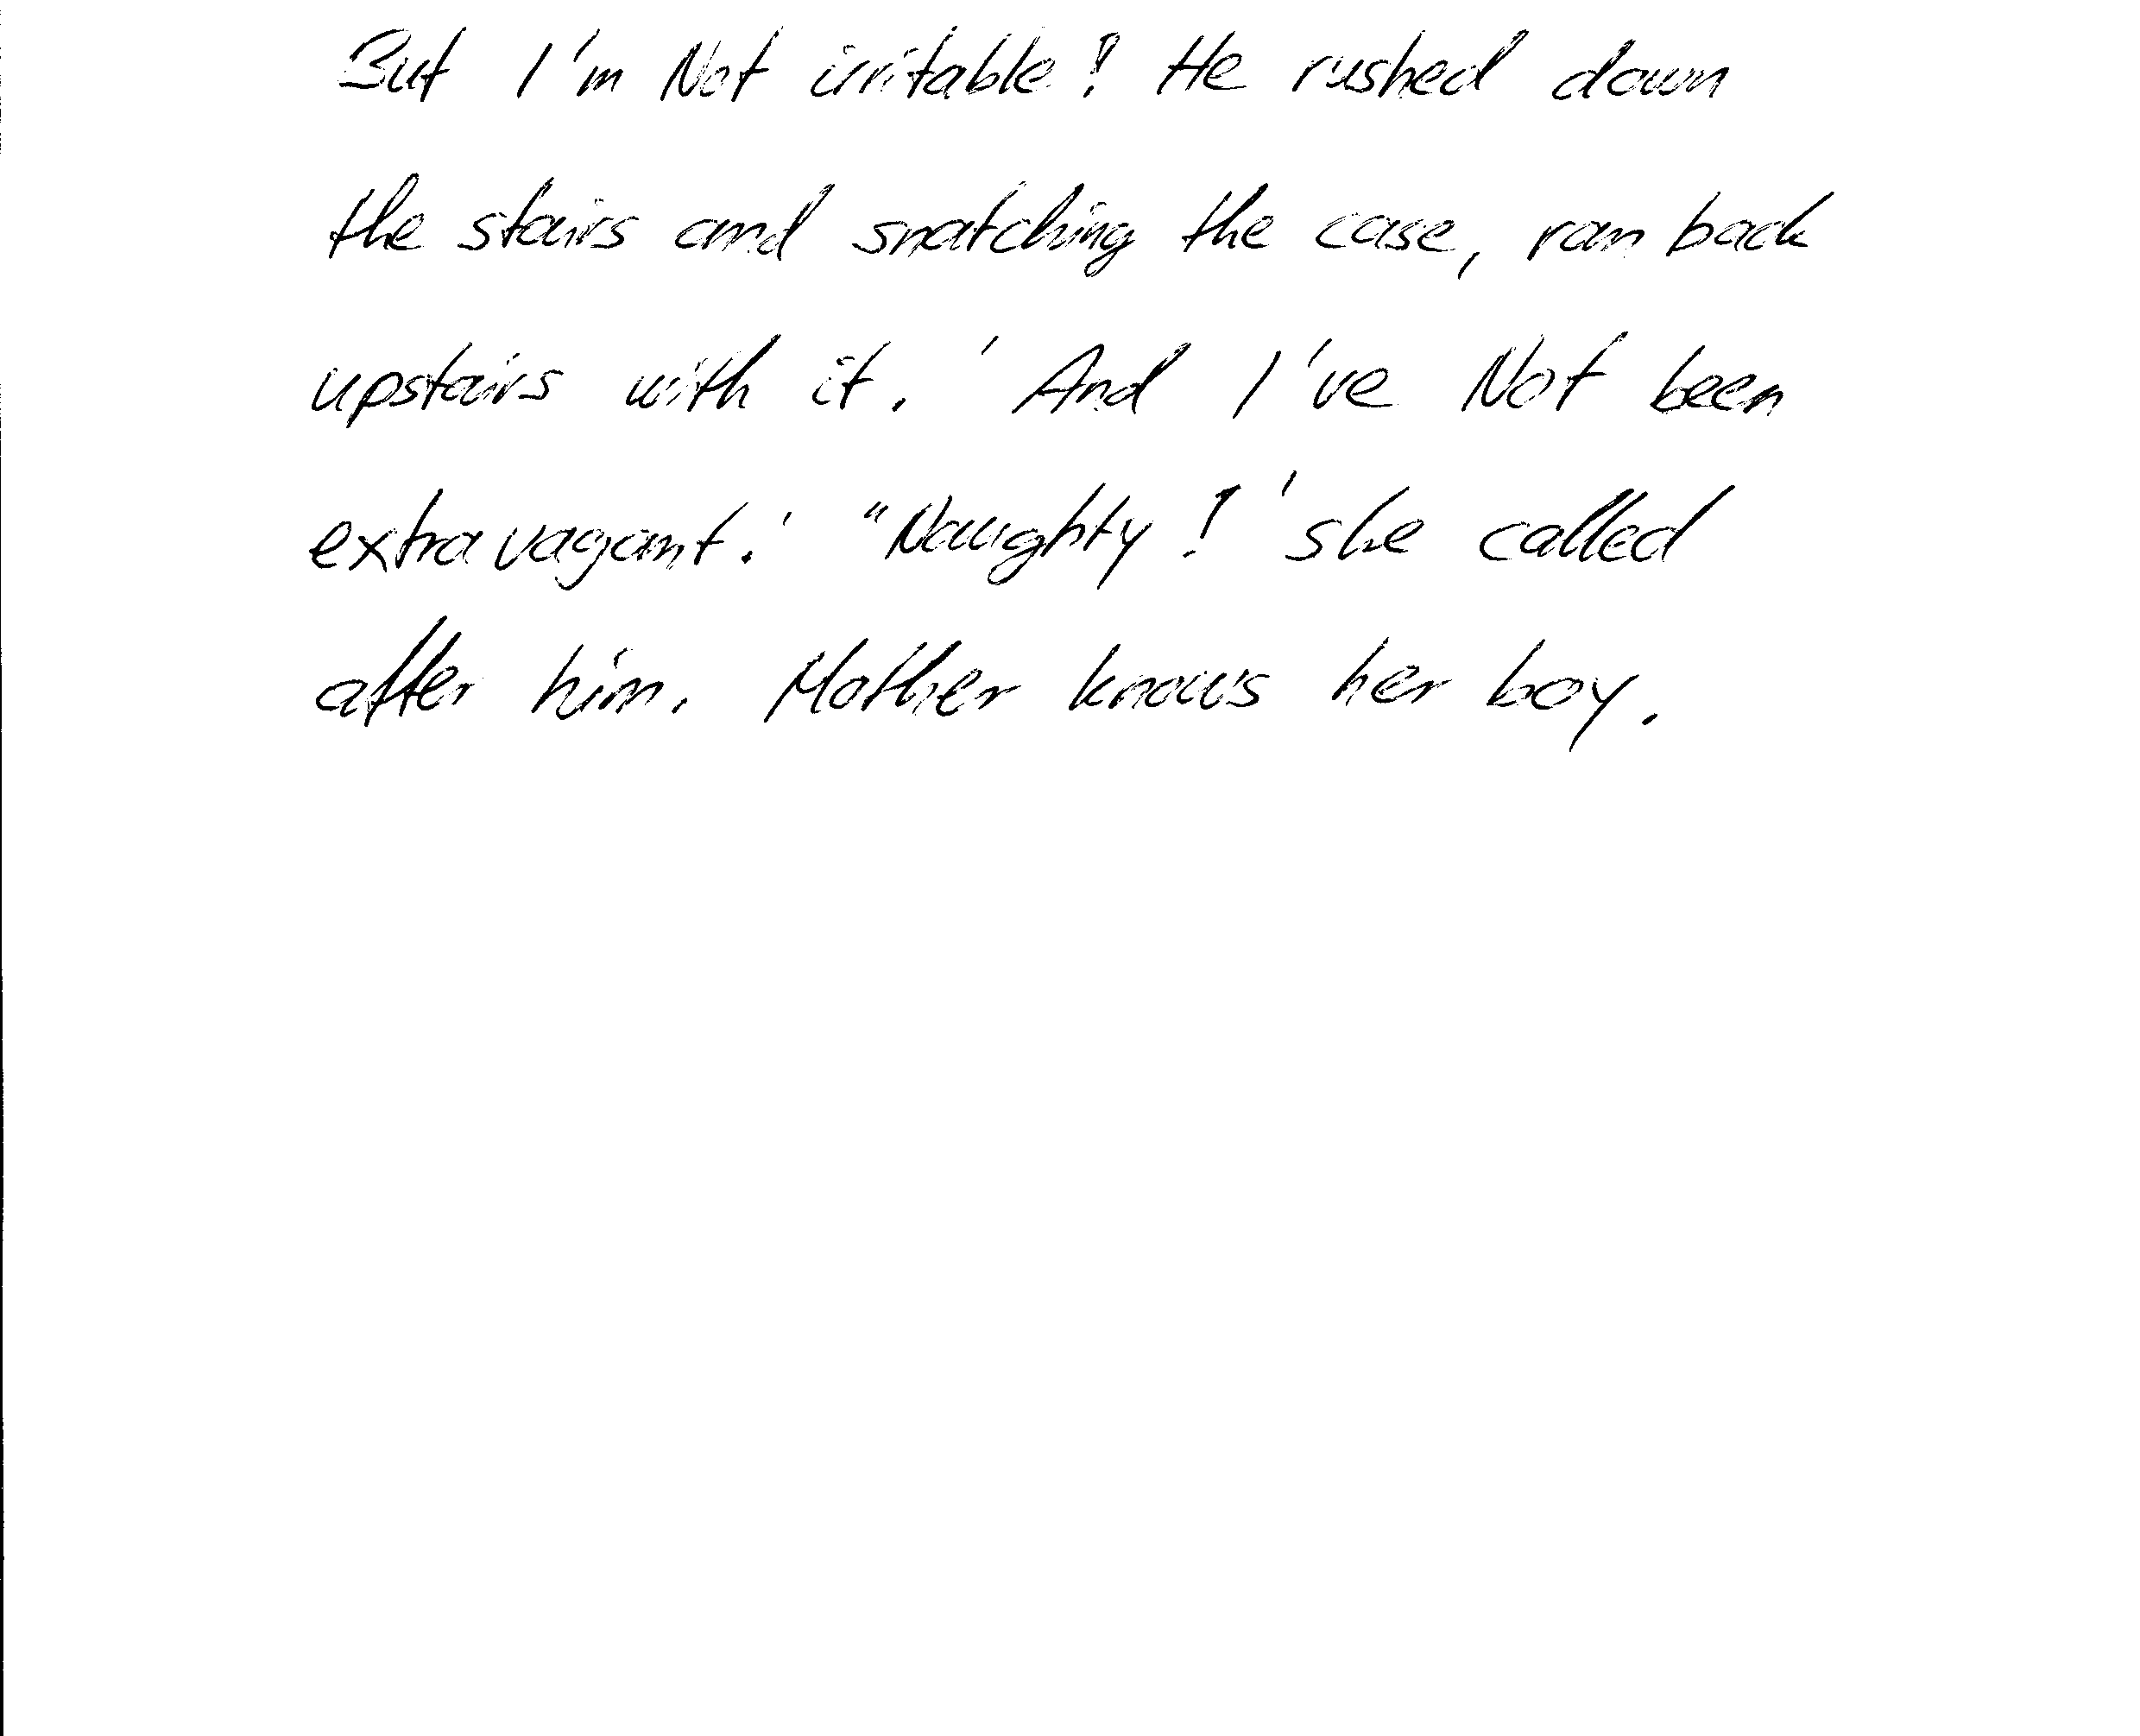 But I'm Not irritable! He rushed down
the stairs and snatching the case, ran back
upstairs with it. 'And I've Not been
extravagant.' "Naughty!' she called
after him. Mother knows her boy.